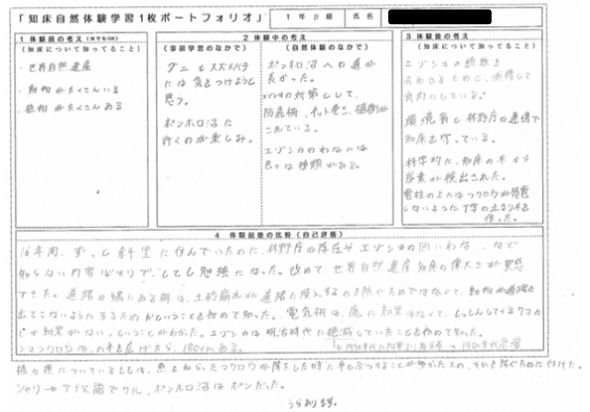 「知床自然体験学習1枚ポートフォリオ」
1年B組
氏名
1 体験前の考え
(知床について知ってること)
・世界自然遺産
・動物がたくさんいる
・植物がたくさんある
2 体験中の考え
(事前学習のなかで)
ダニとスズメバチ
には気をつけようと
思う。
ポンホロ沼に
行くのが楽しみ。
(自然体験のなかで)
ポンホロ沼への道が
長かった。
エゾシカの対策として、
防鹿柵、ネット巻き、
されている。
エゾシカのわなには
色々な種類がある。
3 体験後の考え
(知床について知ってること)
エゾシカの頭数を
ために、捕獲して
食肉にしている。
環境省と林野庁の連携で
知床を守っている。
科学的に、知床の木から
窒素が検出された。
電柱の上にはフクロウが感電
しないようにT字の止まり木を
作った。
4 体験前後の比較(自己評価)
16年間、ずっと斜里に住んでいたのに、林野庁の存在やエゾシカの囲いわな、など
知らない内容ばかりで、とても勉強になった。改めて、世界自然遺産知床の偉大さが実感
できた。道路の端にある柵は、土砂崩れが道路に侵入するのを防ぐためではなくて、動物が道路に
出てこないようにするためだということを初めて知った。電気柵は、鹿に効果はなくて、
効果がない、ということがわかった。エゾシカは明治時代に絶滅していたことも初めて知った。
シマフクロウは、羽を広げたら、180cmある。
橋の横についている は、魚を ったフクロウが降下した時に車とぶつかることが多かったため、それを防ぐために付けた。
シャリはアイヌ語でサル、ポンホロ沼はポンだった。
うらあります。